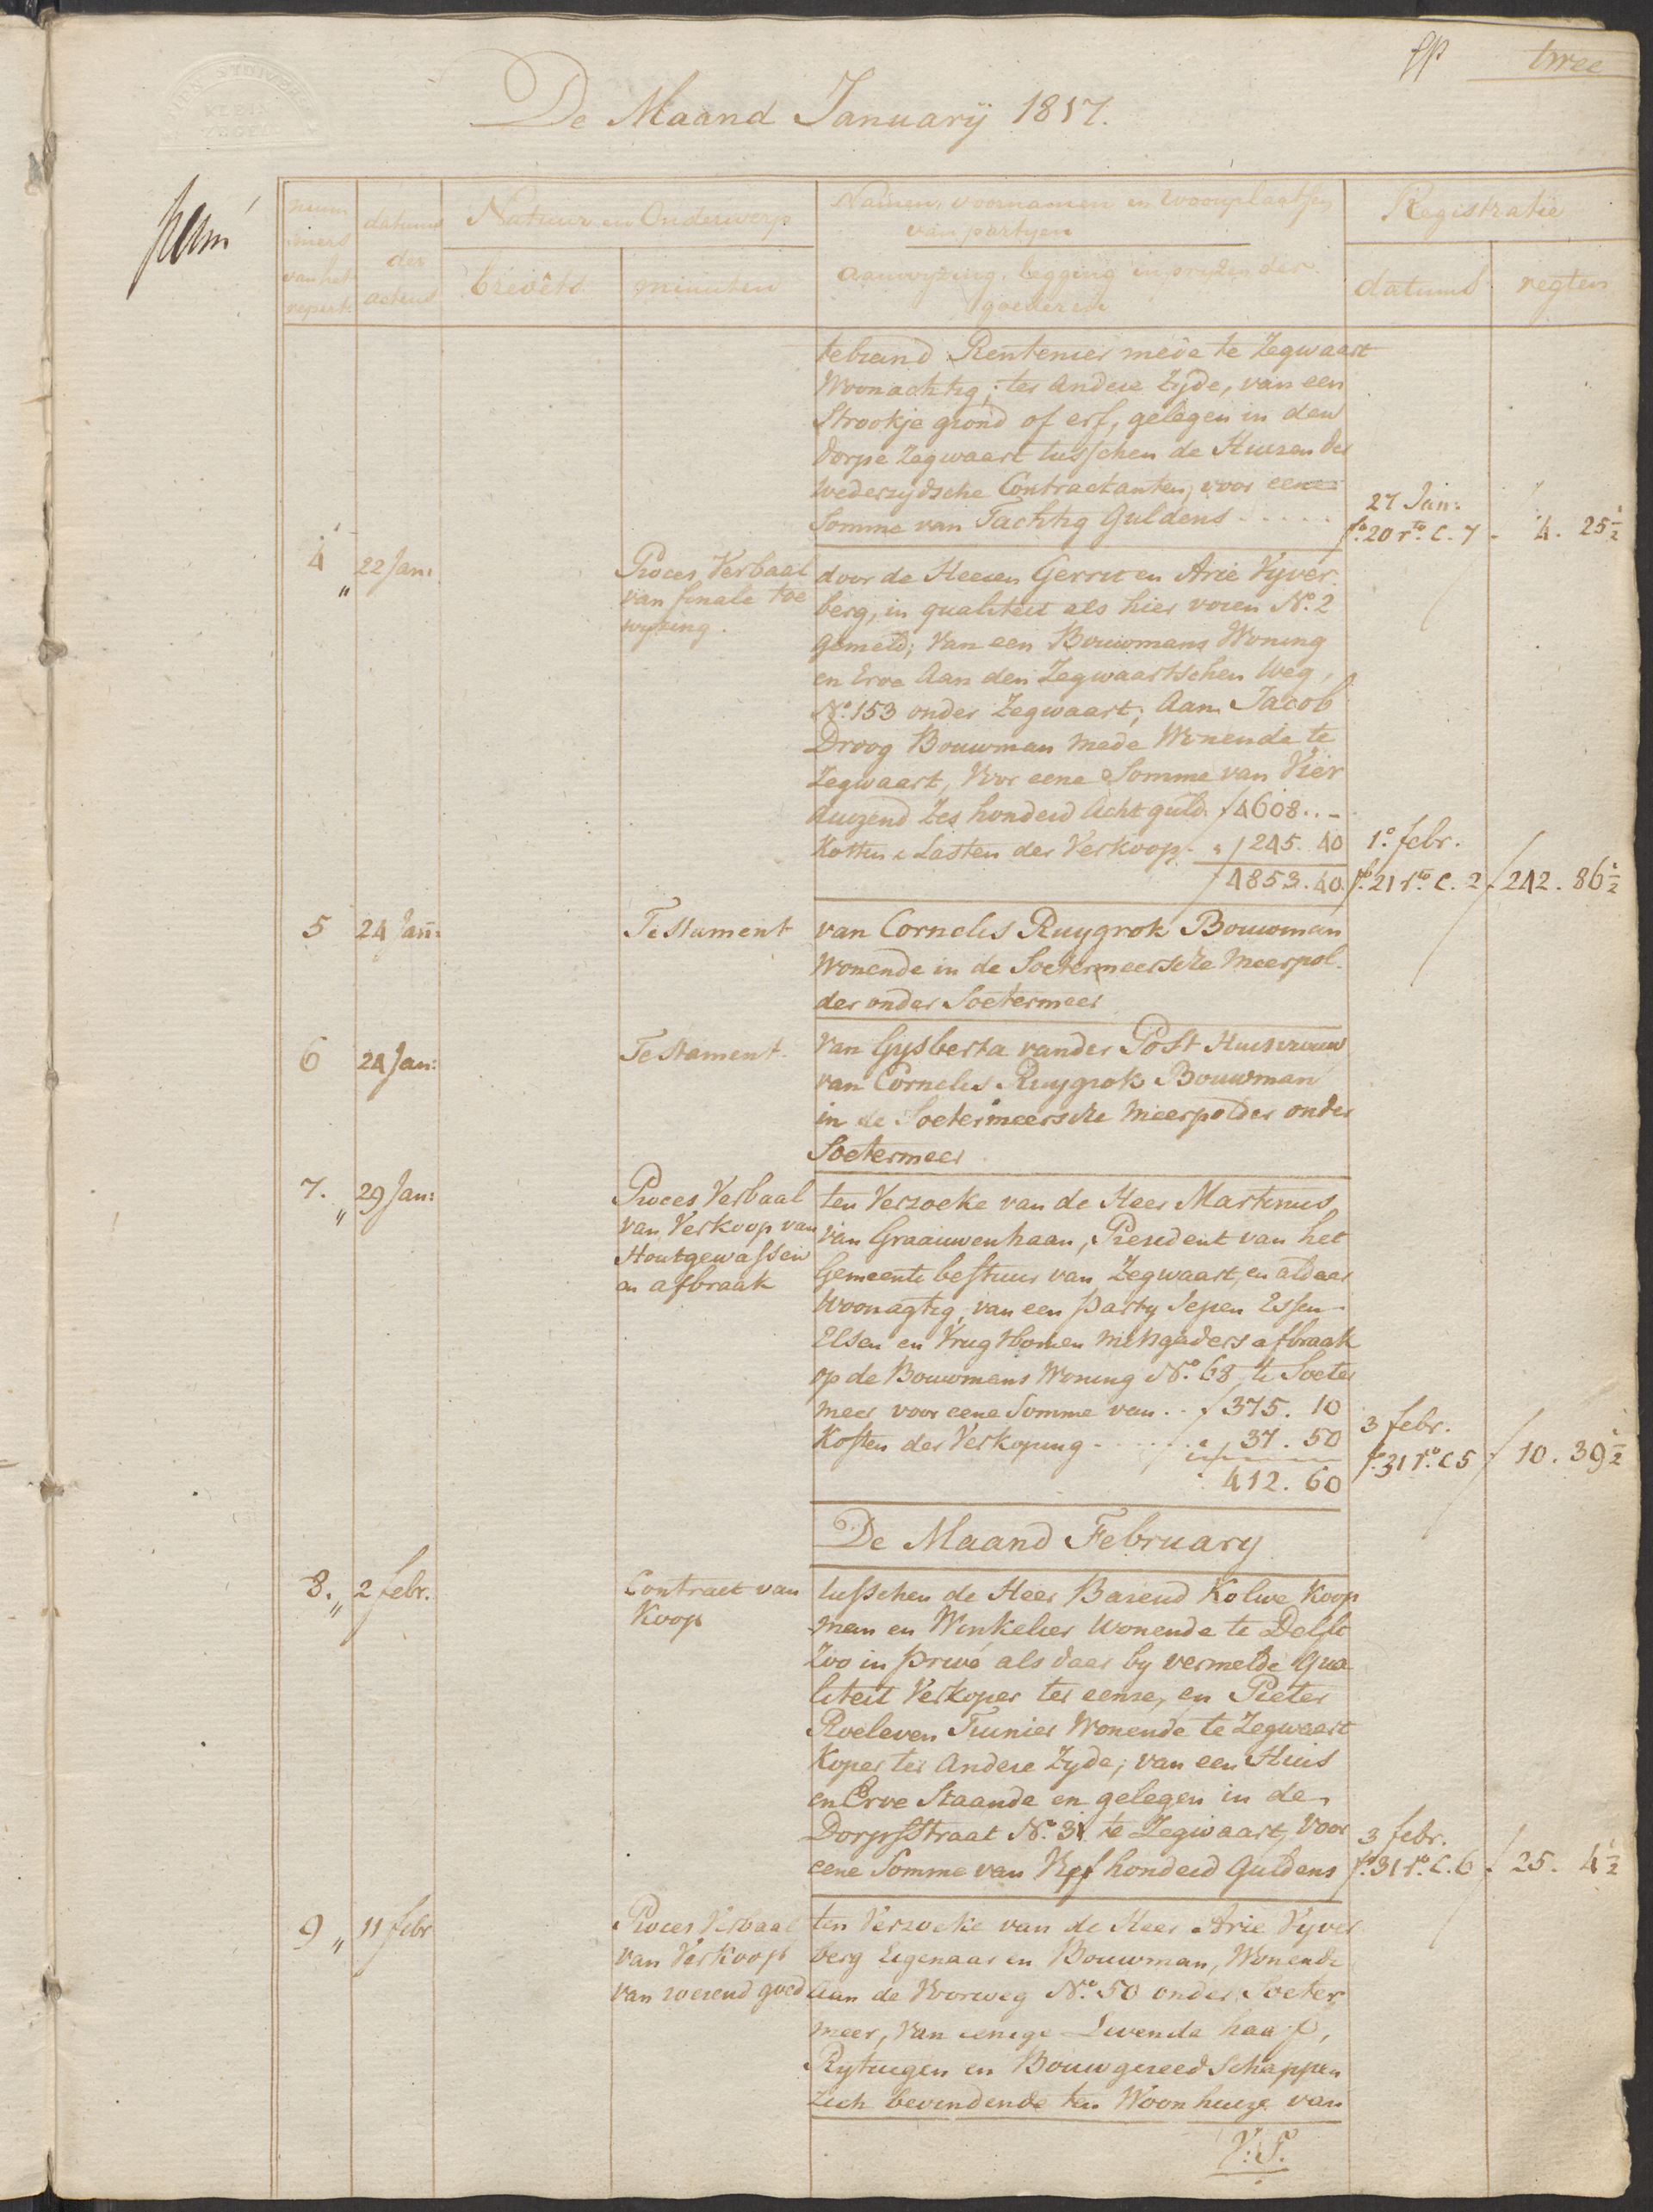 twee
De Maand Januarij 1817.
num
mers
van het
repert:
datums
der
actens
Natuur en Onderwerp
brevêts
minuten
Namen, voornamen en woonplaatsen
van partyen
aanwyzing, legging en pryzen der
goederen
Registratie
datums
regten
tebrand Rentenier mede te Zegwaart
Woonachtig; ter andere Zyde, van een
Strookje grond of erf, gelegen in den
dorpe Zegwaart tusschen de Huizen der
wederzydsche Contractanten, voor eene
Somme van Tachtig Guldens . . . . .
27 Jan:
f° 20 r° C. 7 - 4. 25½
4 " 22 Jan:
Proces Verbaal
van finale toe
wyzing.
door de Heeren Gerrit en Arie Vyver
berg, in qualiteit als hier voren N° 2
gemeld; Van een Bouwmans Woning
en Erve Aan den Zegwaartschen Weg,
N° 153 onder Zegwaart; Aan Jacob
Droog Bouwman mede Wonende te
Zegwaart, Voor eene Somme van Vier
duizend Zes honderd Acht guld. f 4608..-
Kosten & Lasten der Verkoop - " f 245. 40
f 4853. 40.
1° febr.
f° 21 r° C. 2 f 242. 86½
5 24 Jan:
Testament
van Cornelis Ruygrok Bouwman
Wonende in de Soetermeersche Meerpol
der onder Soetermeer
6 24 Jan:
Testament.
Van Gysberta vander Post Huisvrouw
van Cornelis Ruygrok Bouwman
in de Soetermeersche Meerpolder onder
Soetermeer
7. " 29 Jan:
Proces Verbaal
van Verkoop van
Houtgewassen
en afbraak
ten Verzoeke van de Heer Martinus
van Graauwenhaan, President van het
Gemeente bestuur van Zegwaart, en aldaar
Woonagtig, van een party Iepen Essen
Elsen en Vrugtbomen mitsgaders afbraak
op de Bouwmans Woning N° 68 te Soeter
meer voor eene Somme van . . f 375. 10
Kosten der Verkoping - . . . . " f 37. 50
412. 60
3 febr.
f° 31 r° C 5 f 10. 39½
De Maand February
8. " 2 febr.
Contract van
Koop
tusschen de Heer Barend Kolwe Koop
man en Winkelier Wonende te Delft
Zoo in privé als daar by vermelde qua
liteit Verkoper ter eenre, en Pieter
Roeleven Tuinier Wonende te Zegwaart
Koper ter Andere Zyde; van een Huis
en Erve Staande en gelegen in de
Dorpsstraat N° 31 te Zegwaart, Voor
eene Somme van Vyf honderd Guldens
3 febr.
f° 31 r° C. 6 f 25. 4½
9 " 11 febr
Proces Verbaal
van Verkoop
van roerend goed
ten Verzoeke van de Heer Arie Vyver
berg Eigenaar en Bouwman, Wonende
Aan de Voorweg N° 50 onder Soeter
meer, Van eenige Levende haaf,
Rytuigen en Bouwgereedschappen
Zich bevindende ten Woonhuize van
V: S.